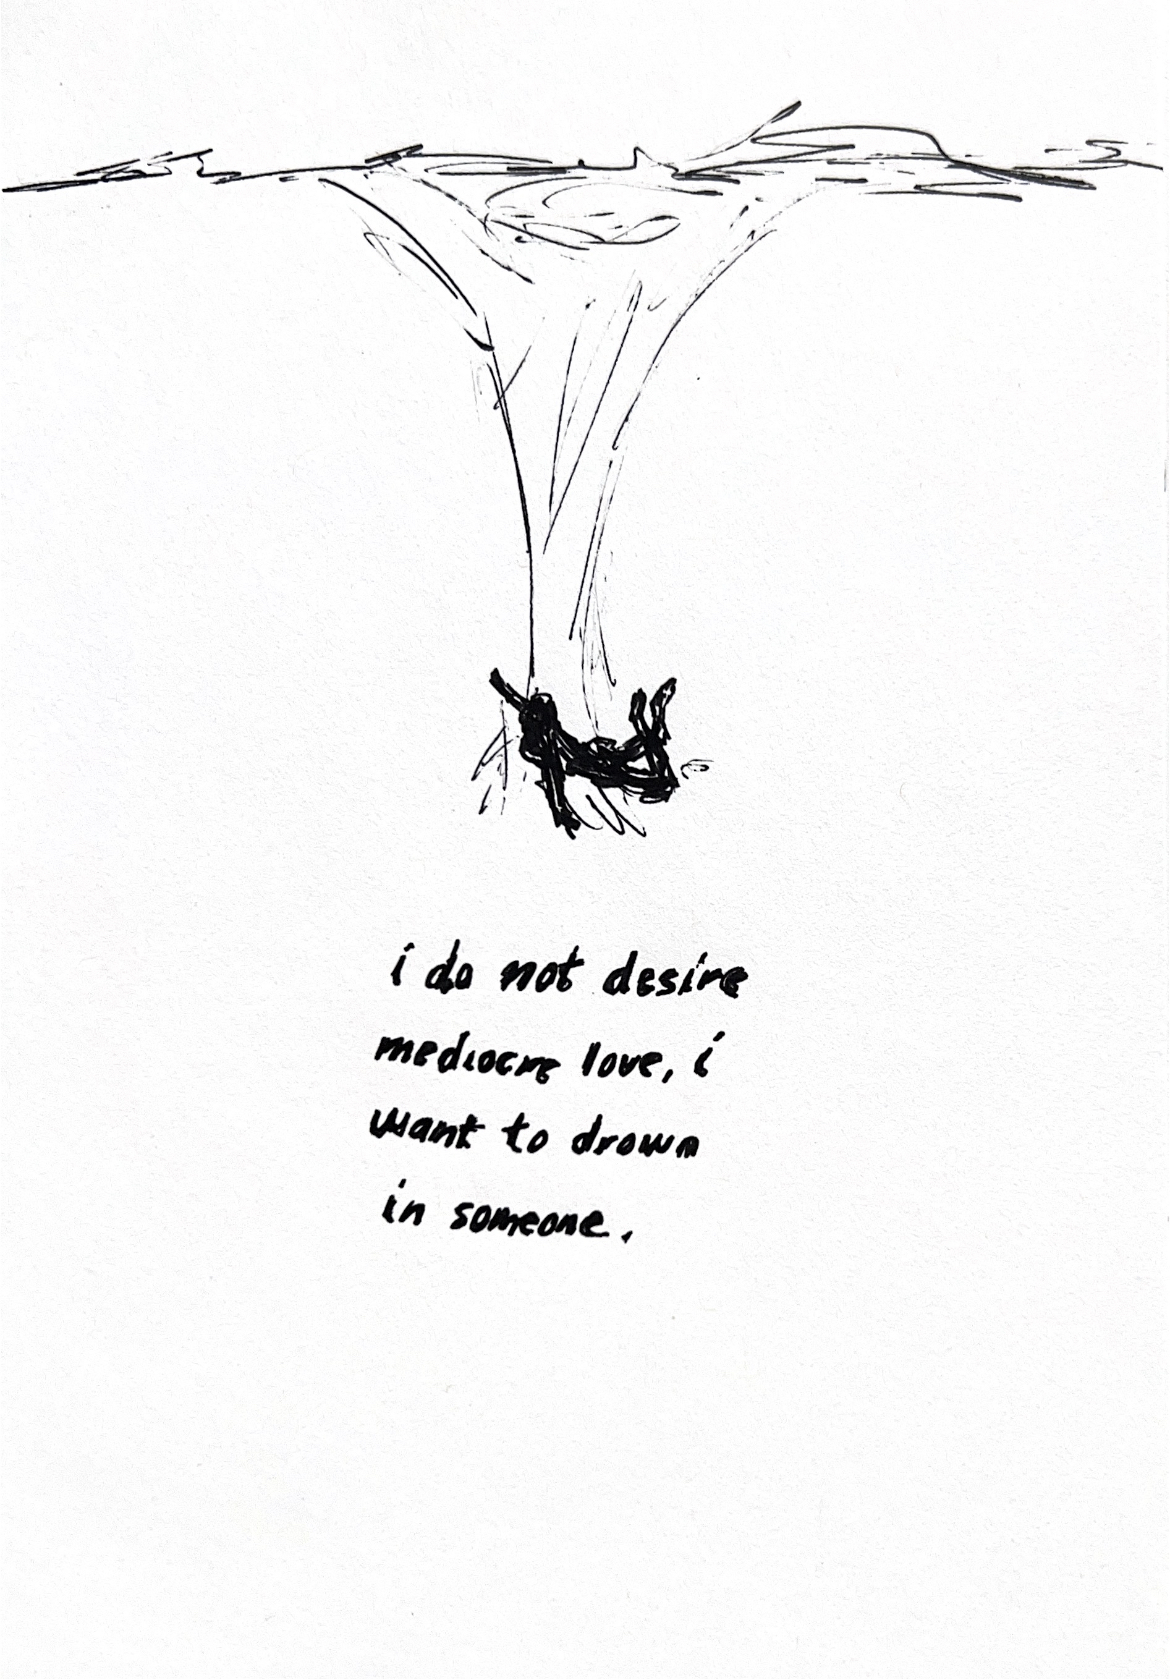 i do not desire
mediocre love, i
want to drown
in someone.